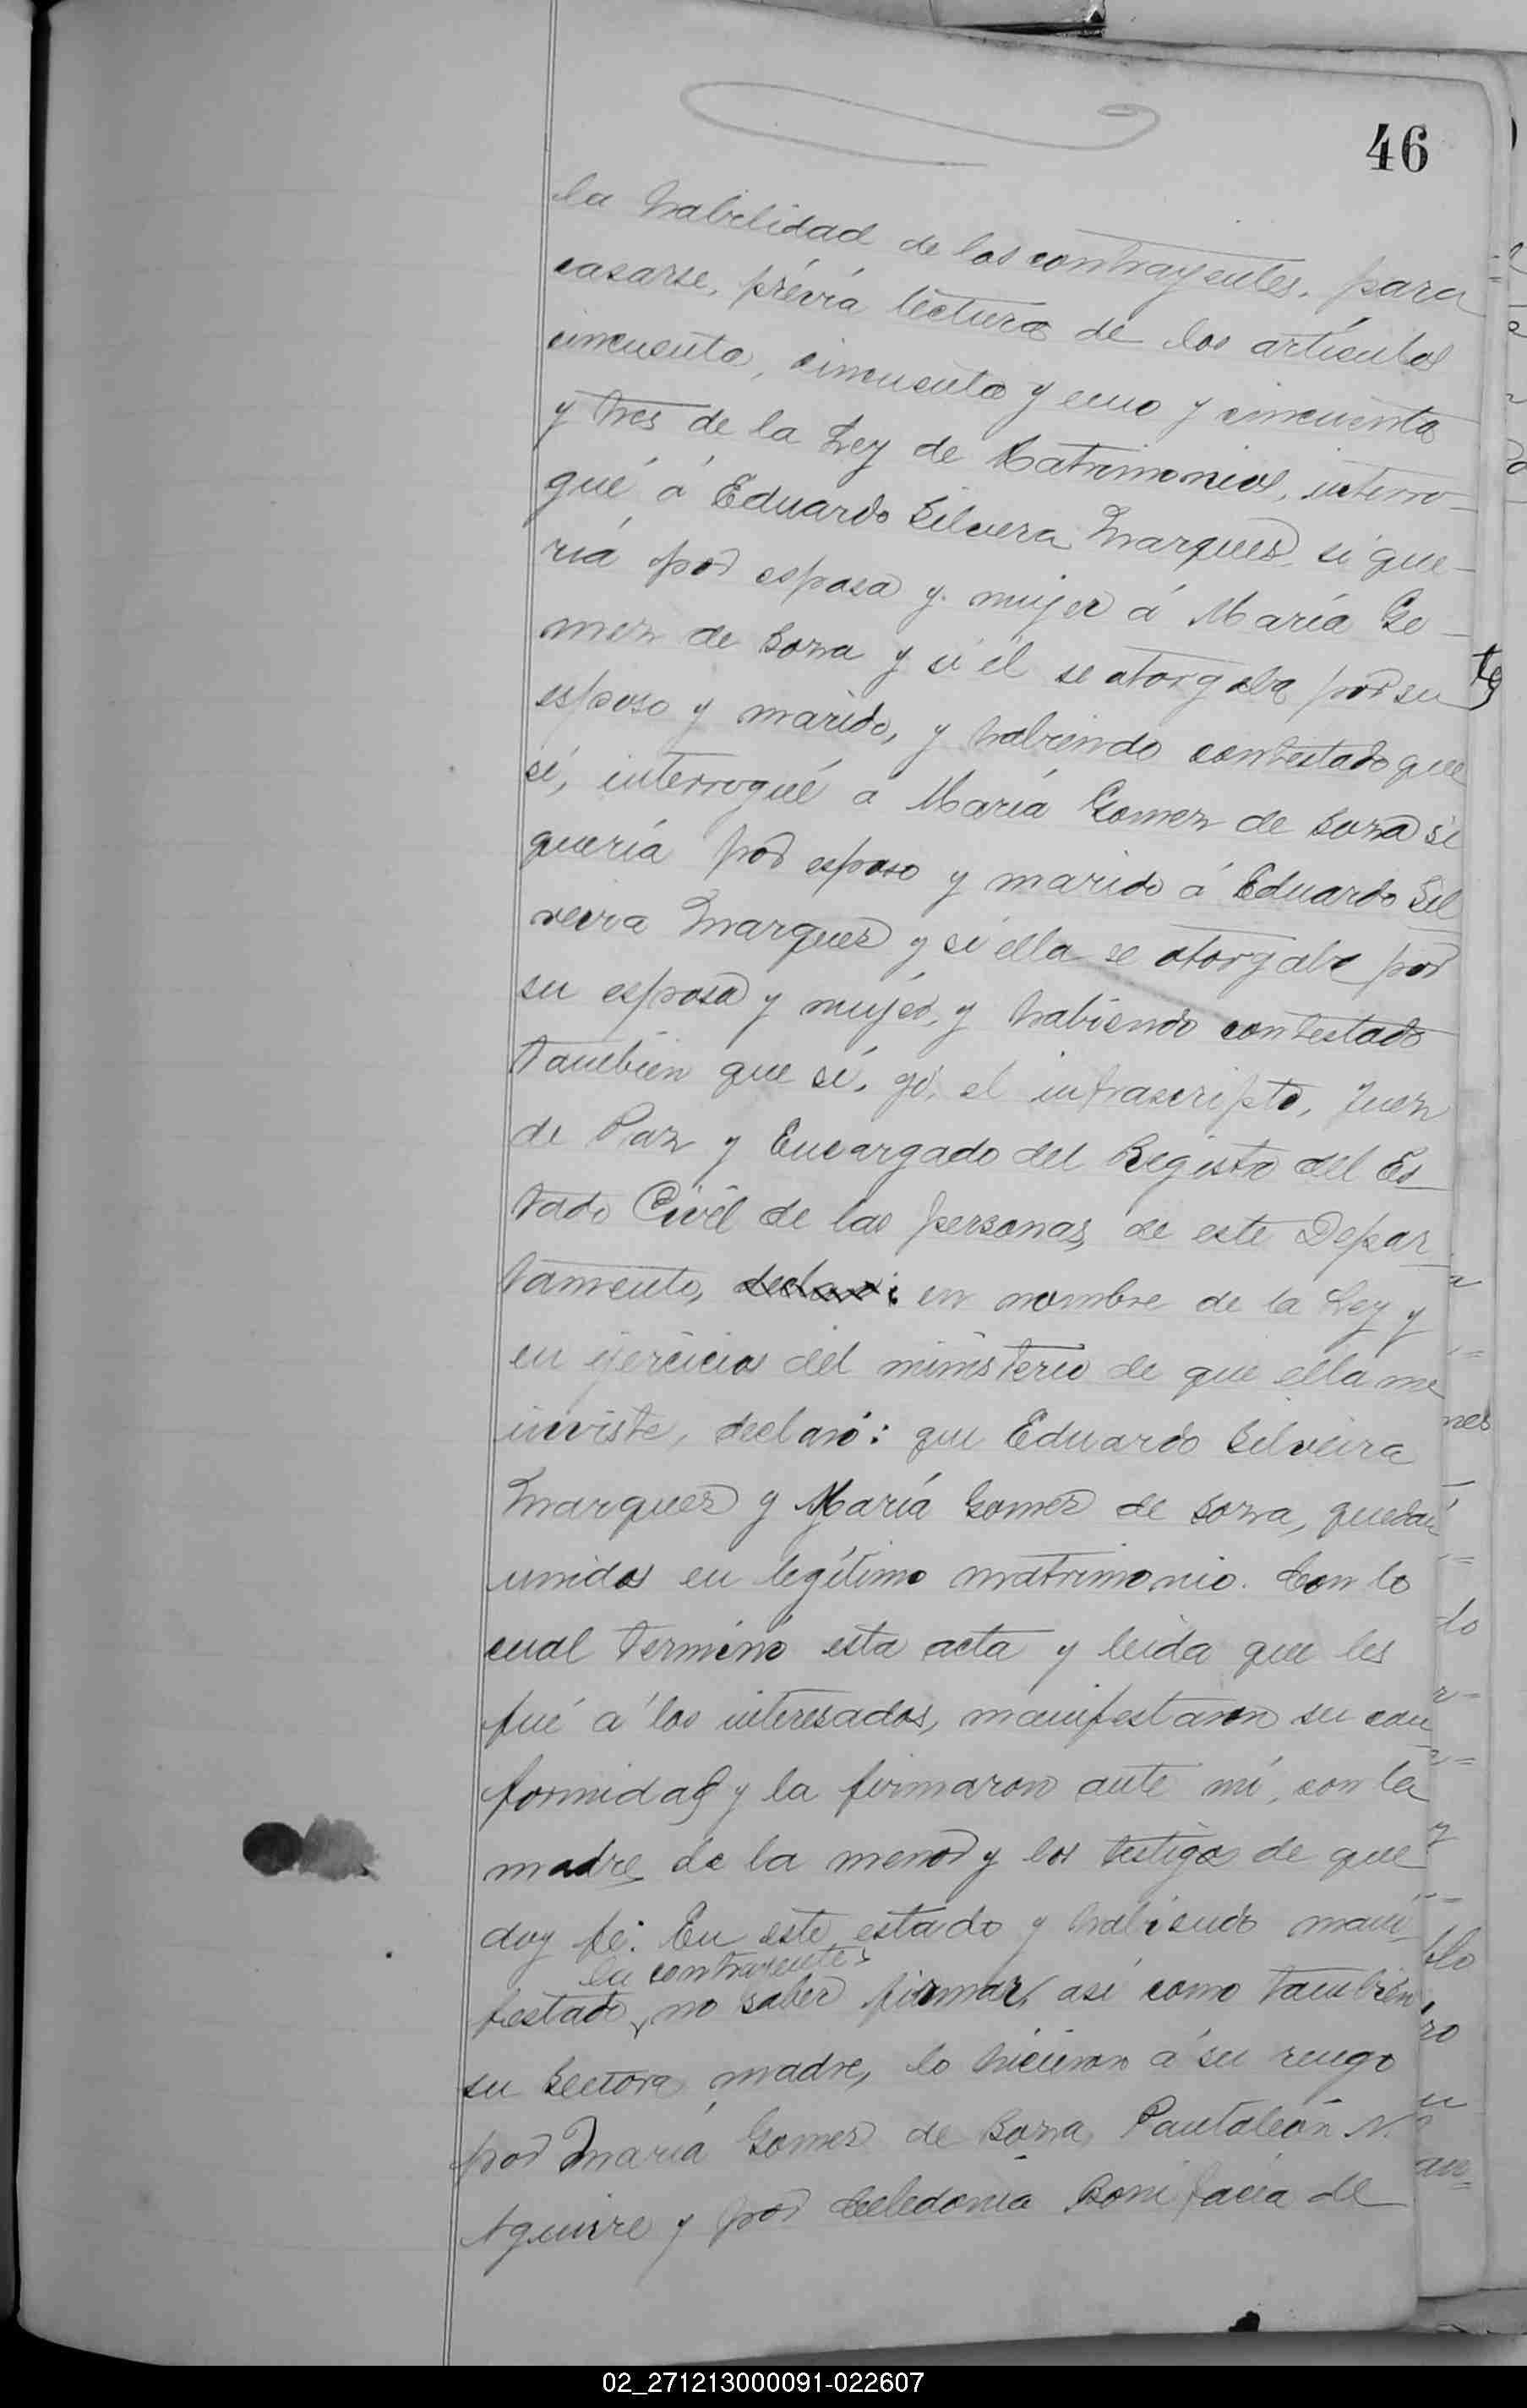 46
la habilidad de los contrayentes, para
casarse, prévia lectura de los artículos
cincuenta, cincuenta y uno y cincuenta
y tres de la Ley de Matrimonios, interro-
gué á Eduardo Silvera Marques, si que-
ría por esposa y mujer á María Go-
mez de Soza y si él se otorgaba por su
esposo y marido, y habiendo contestado que
sí, interrogué a María Gomez de Soza si
quería por esposo y marido á Eduardo Sil
veira Marques y si ella se otorgaba por
su esposa y mujer, y habiendo contestado
tambien que sí, yó, el infrascripto, Juez
de Paz y Encargado del Registro del Es-
tado Civil de las personas, de este Depar-
tamento, declaro: en nombre de la Ley y
en ejercicio del ministerio de que ella me
inviste, declaró: que Eduardo Silveira
Marques y María Gomez de Soza, quedan
unidos en legítimo matrimonio. Con lo
cual terminó esta acta y leida que les
fué á los interesados, manifestaron su con
formidad y la firmaron ante mí, con la
madre de la menor y los testigos de que
doy fé. En este estado y habiendo mani-
la contrayente
festado, no saber firmar, así como tambien
su madre, lo hicieron á su ruego
por María Gomez de Soza, Pantaleón N.
Aguirre y por Celedonia Bonifacia de
02_271213000091-022607